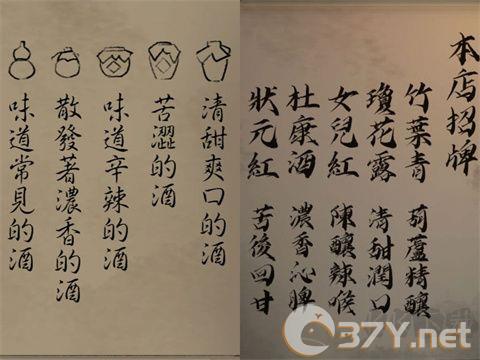 清甜爽口的酒
苦澀的酒
味道辛辣的酒
散發著濃香的酒
味道常見的酒
本店招牌
竹葉青 葫蘆精釀
瓊花露 清甜潤口
女兒紅 陳釀辣喉
杜康酒 濃香沁脾
狀元紅 苦後回甘
37Y.net